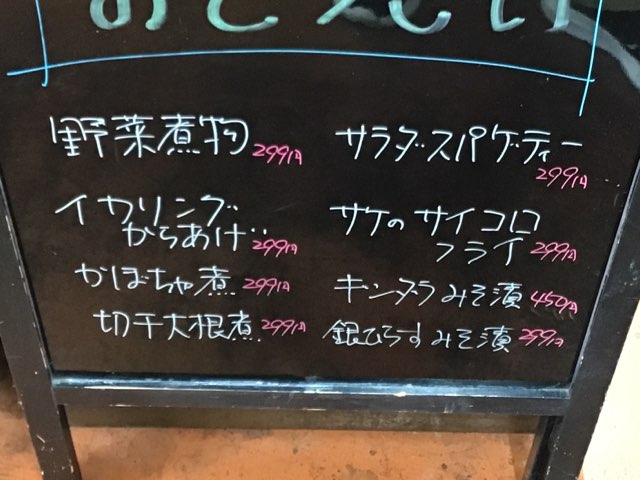 野菜煮物 299円
イカリング
からあげ 299円
かぼちゃ煮 299円
切干大根煮 299円
サラダスパゲティー
299円
サケのサイコロ
フライ 299円
キンダラみそ漬 450円
銀ひらすみそ漬 299円